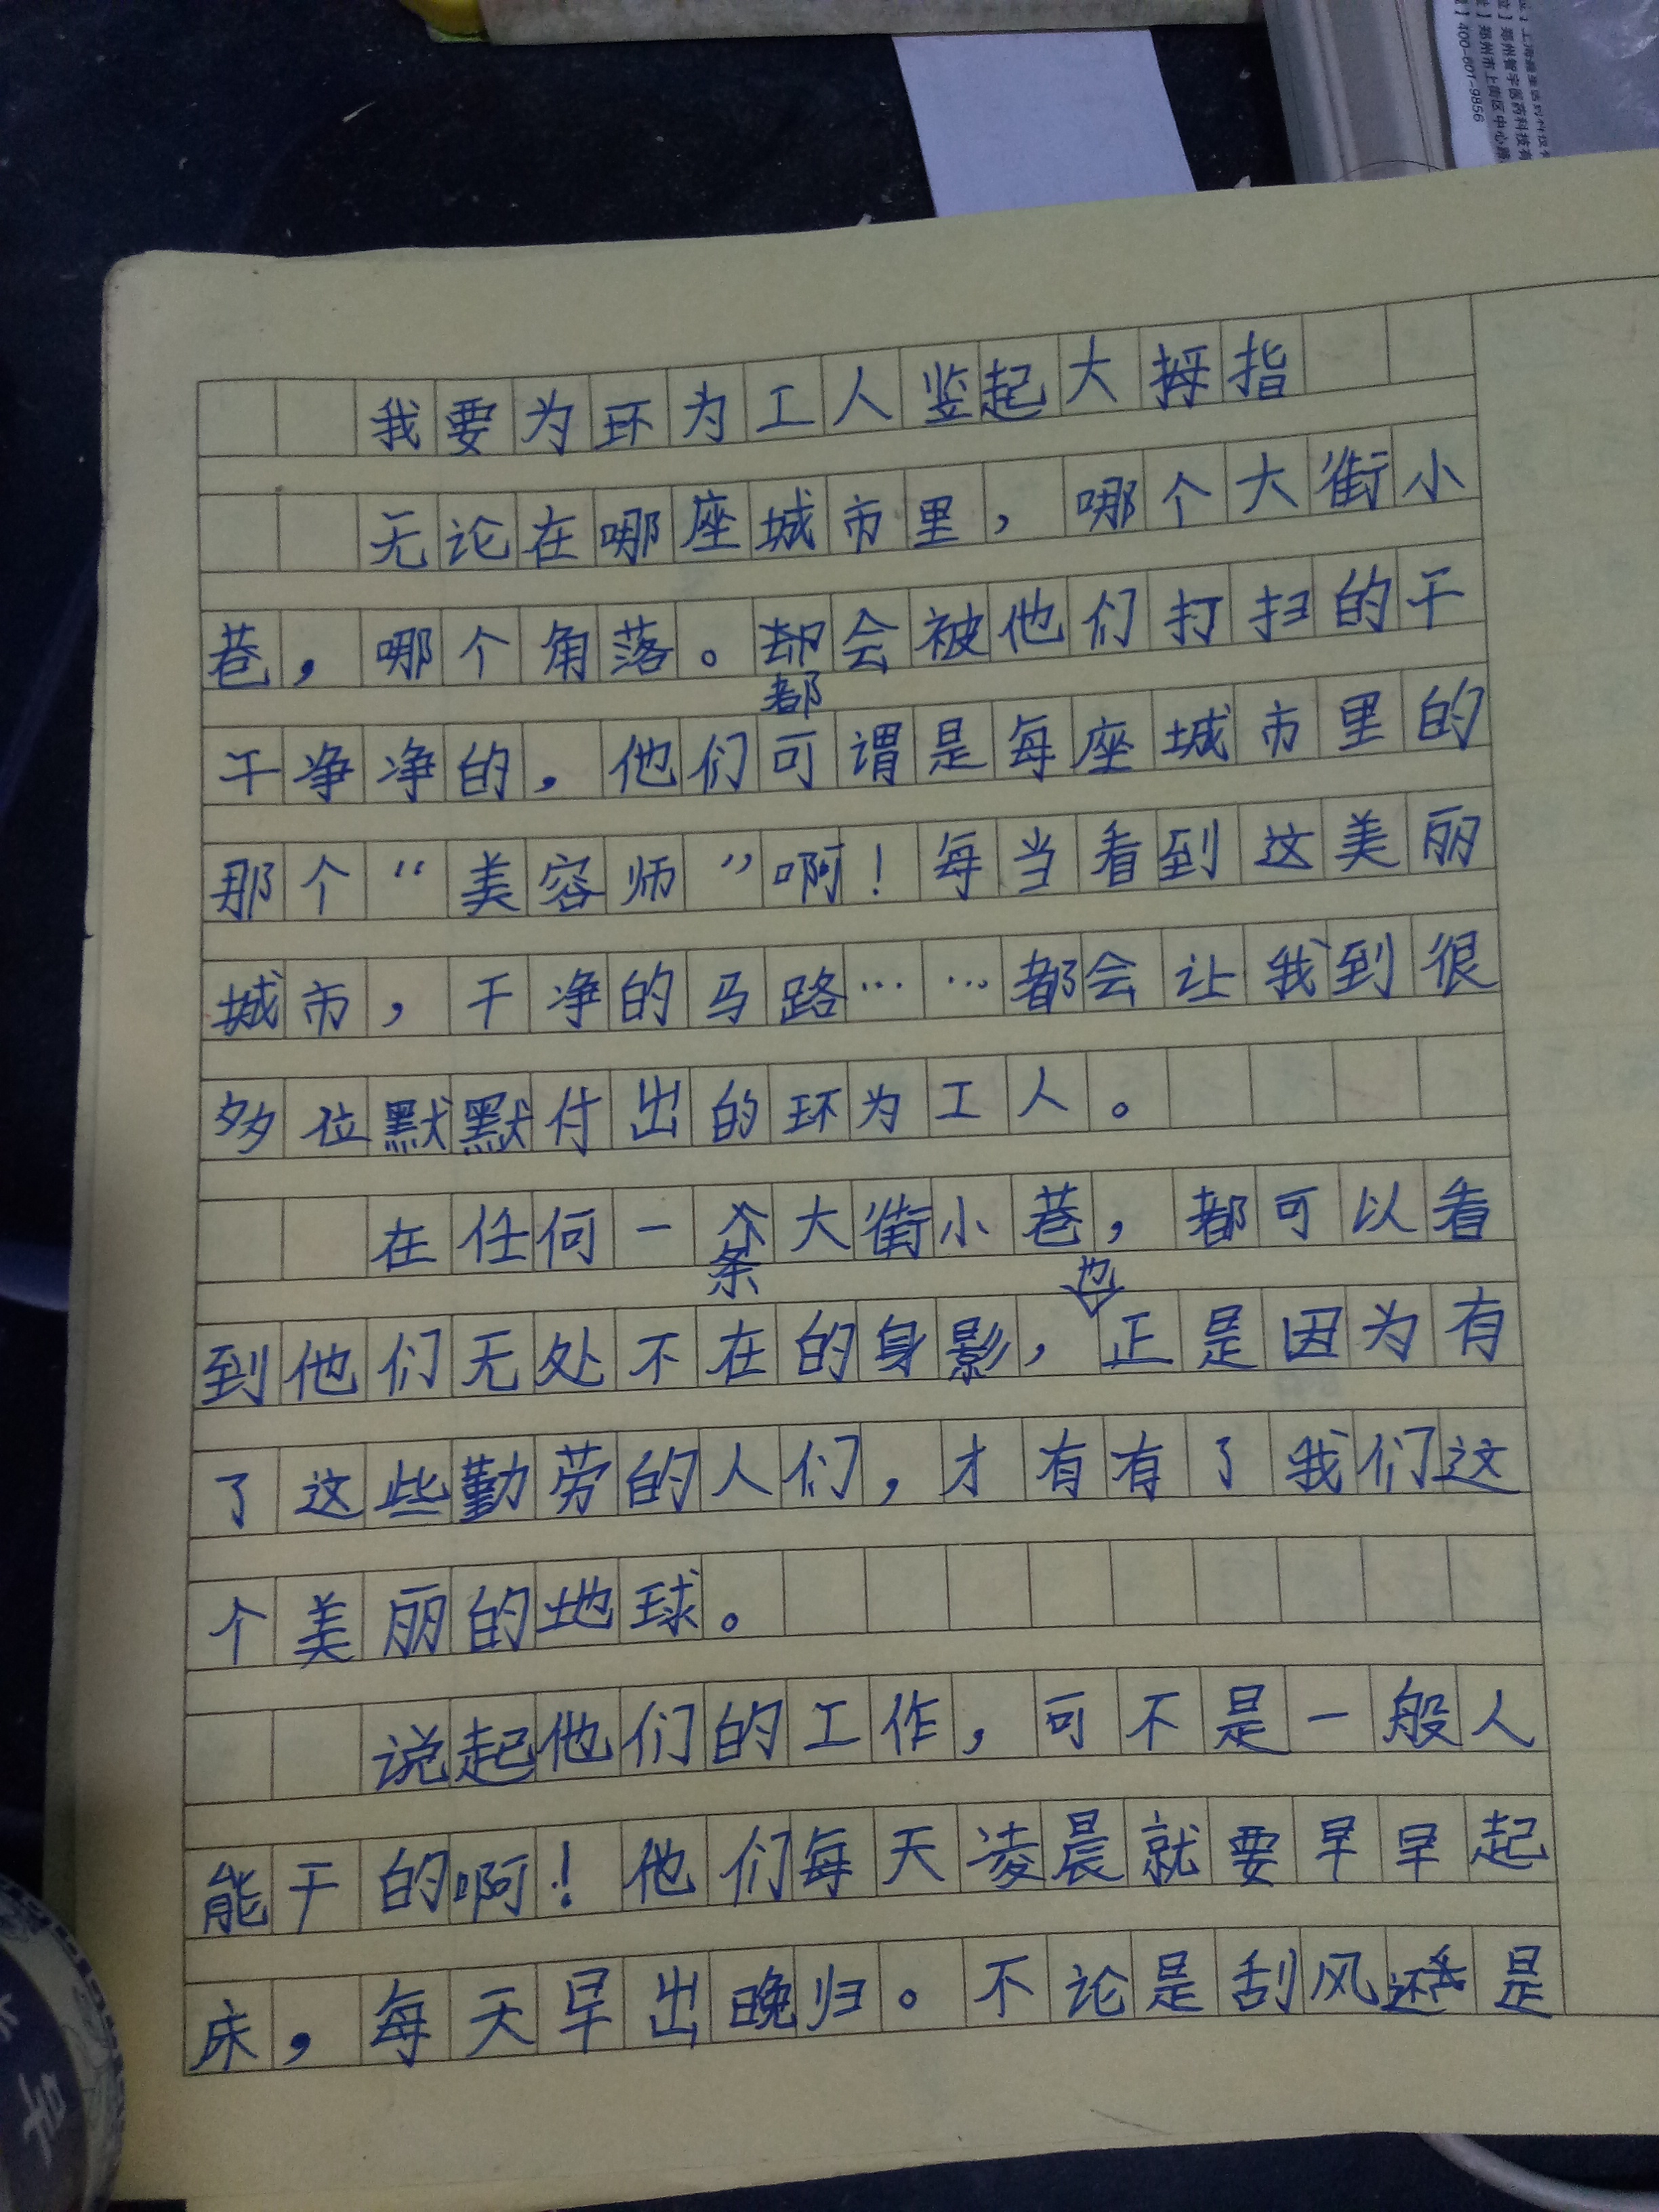 我要为环为工人竖起大拇指
无论在哪座城市里，哪个大街小
巷，哪个角落。却会被他们打扫的干
都
干净净的，他们可谓是每座城市里的
那个“美容师”啊！每当看到这美丽
城市，干净的马路……都会让我到很
多位默默付出的环为工人。
在任何一个大街小巷，都可以看
条
也
到他们无处不在的身影，正是因为有
了这些勤劳的人们，才有有了我们这
个美丽的地球。
说起他们的工作，可不是一般人
能干的啊！他们每天凌晨就要早早起
床，每天早出晚归。不论是刮风还是
400-601-9856